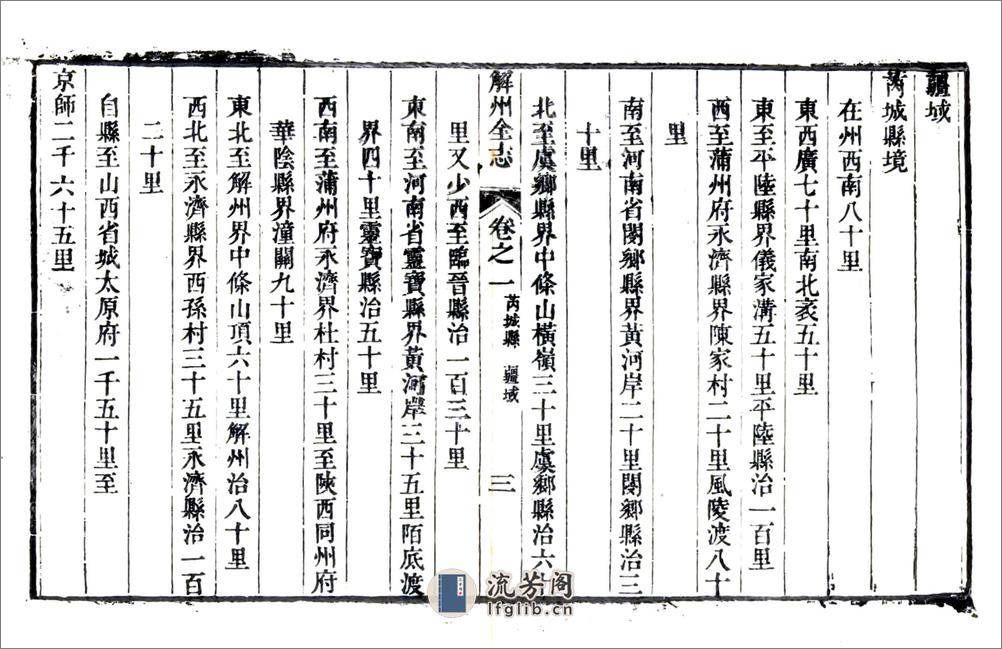 疆域
芮城縣境
在州西南八十里
東西廣七十里南北袤五十里
東至平陸縣界儀家溝五十里平陸縣治一百里
西至蒲州府永濟縣界陳家村二十里風陵渡八十
里
南至河南省閿鄉縣界黃河岸二十里閿鄉縣治三
十里
北至虞鄉縣界中條山橫嶺三十里虞鄉縣治六十
解州全志 卷之一 芮城縣 疆域 三
里又少西至臨晉縣治一百三十里
東南至河南省靈寶縣界黃河岸三十五里陌底渡
界四十里靈寶縣治五十里
西南至蒲州府永濟界杜村三十里至陝西同州府
華陰縣界潼關九十里
東北至解州界中條山頂六十里解州治八十里
西北至永濟縣界西孫村三十五里永濟縣治一百
二十里
自縣至山西省城太原府一千五十里至
京師二千六十五里
流芳阁
lfglib.cn